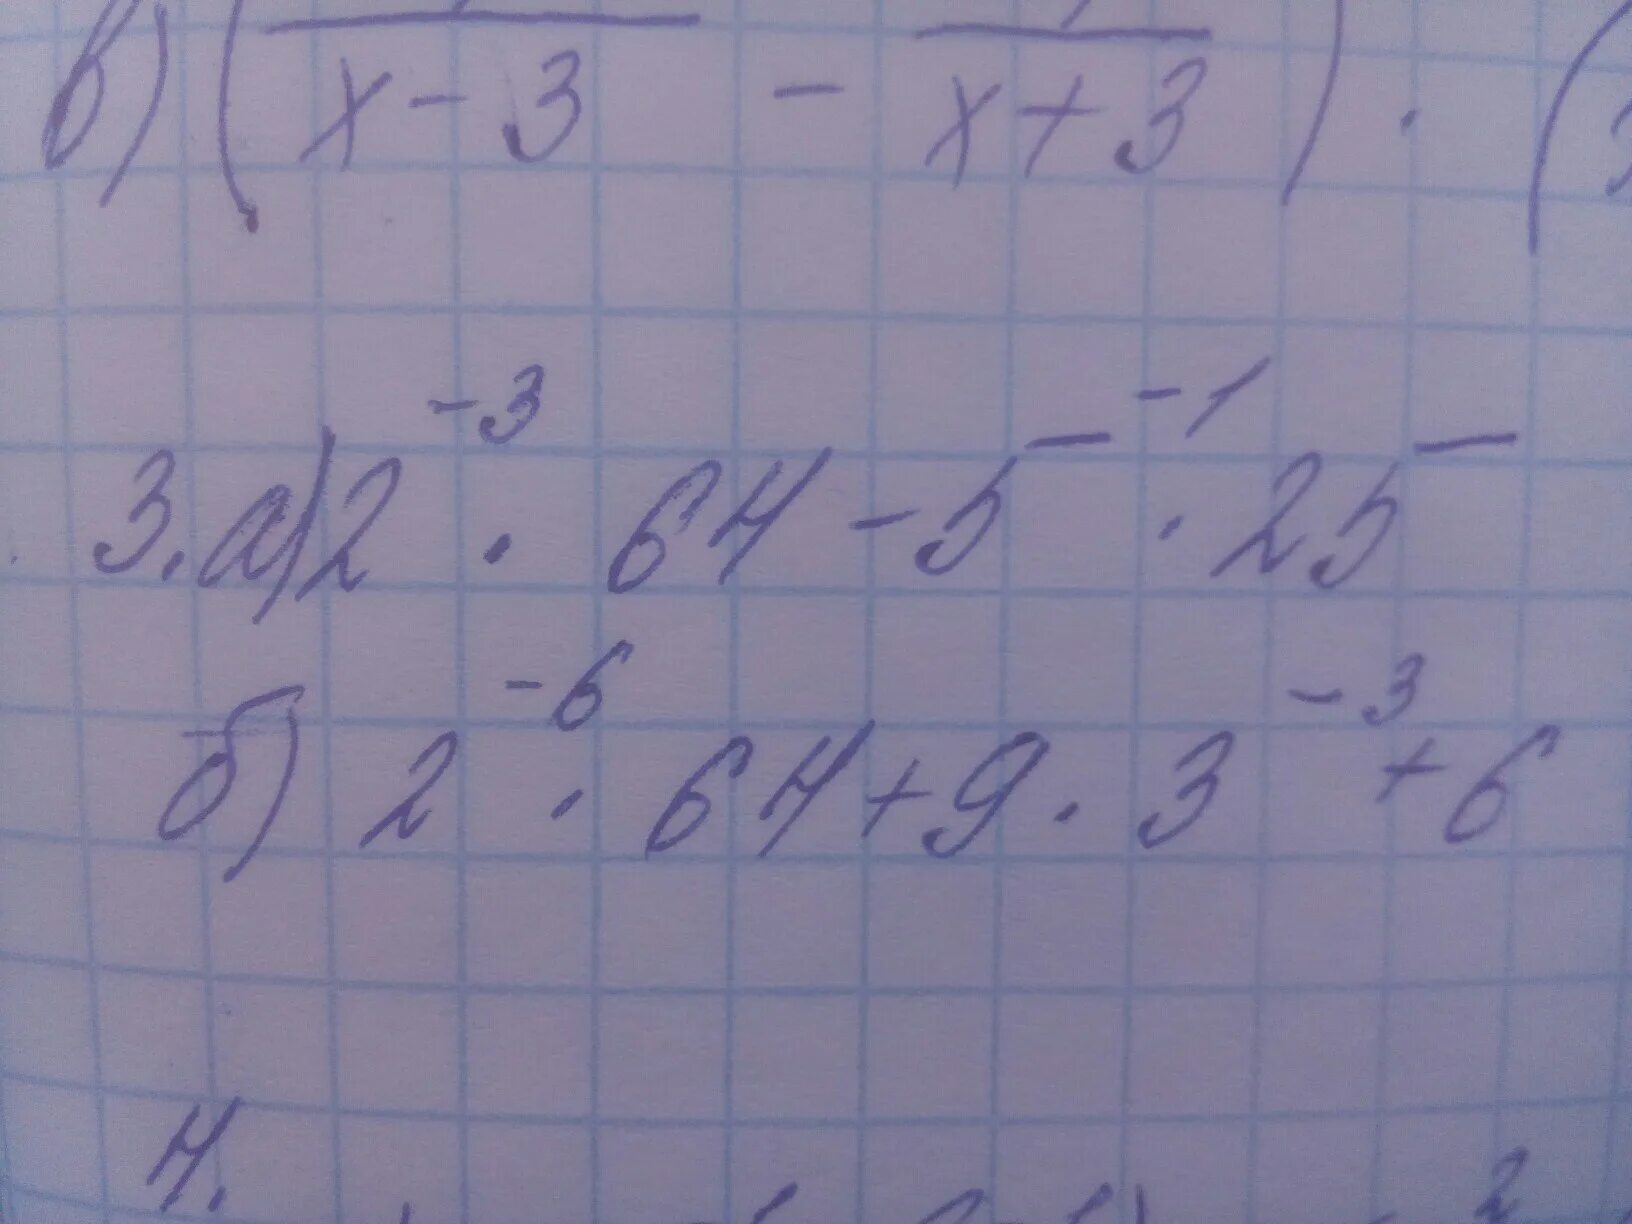 в) ( / x - 3 - / x + 3 ) · (
3. а) 2^-3 · 64 - 5^-1 · 25
б) 2^-6 · 64 + 9 · 3^-3 + 6
4.
2